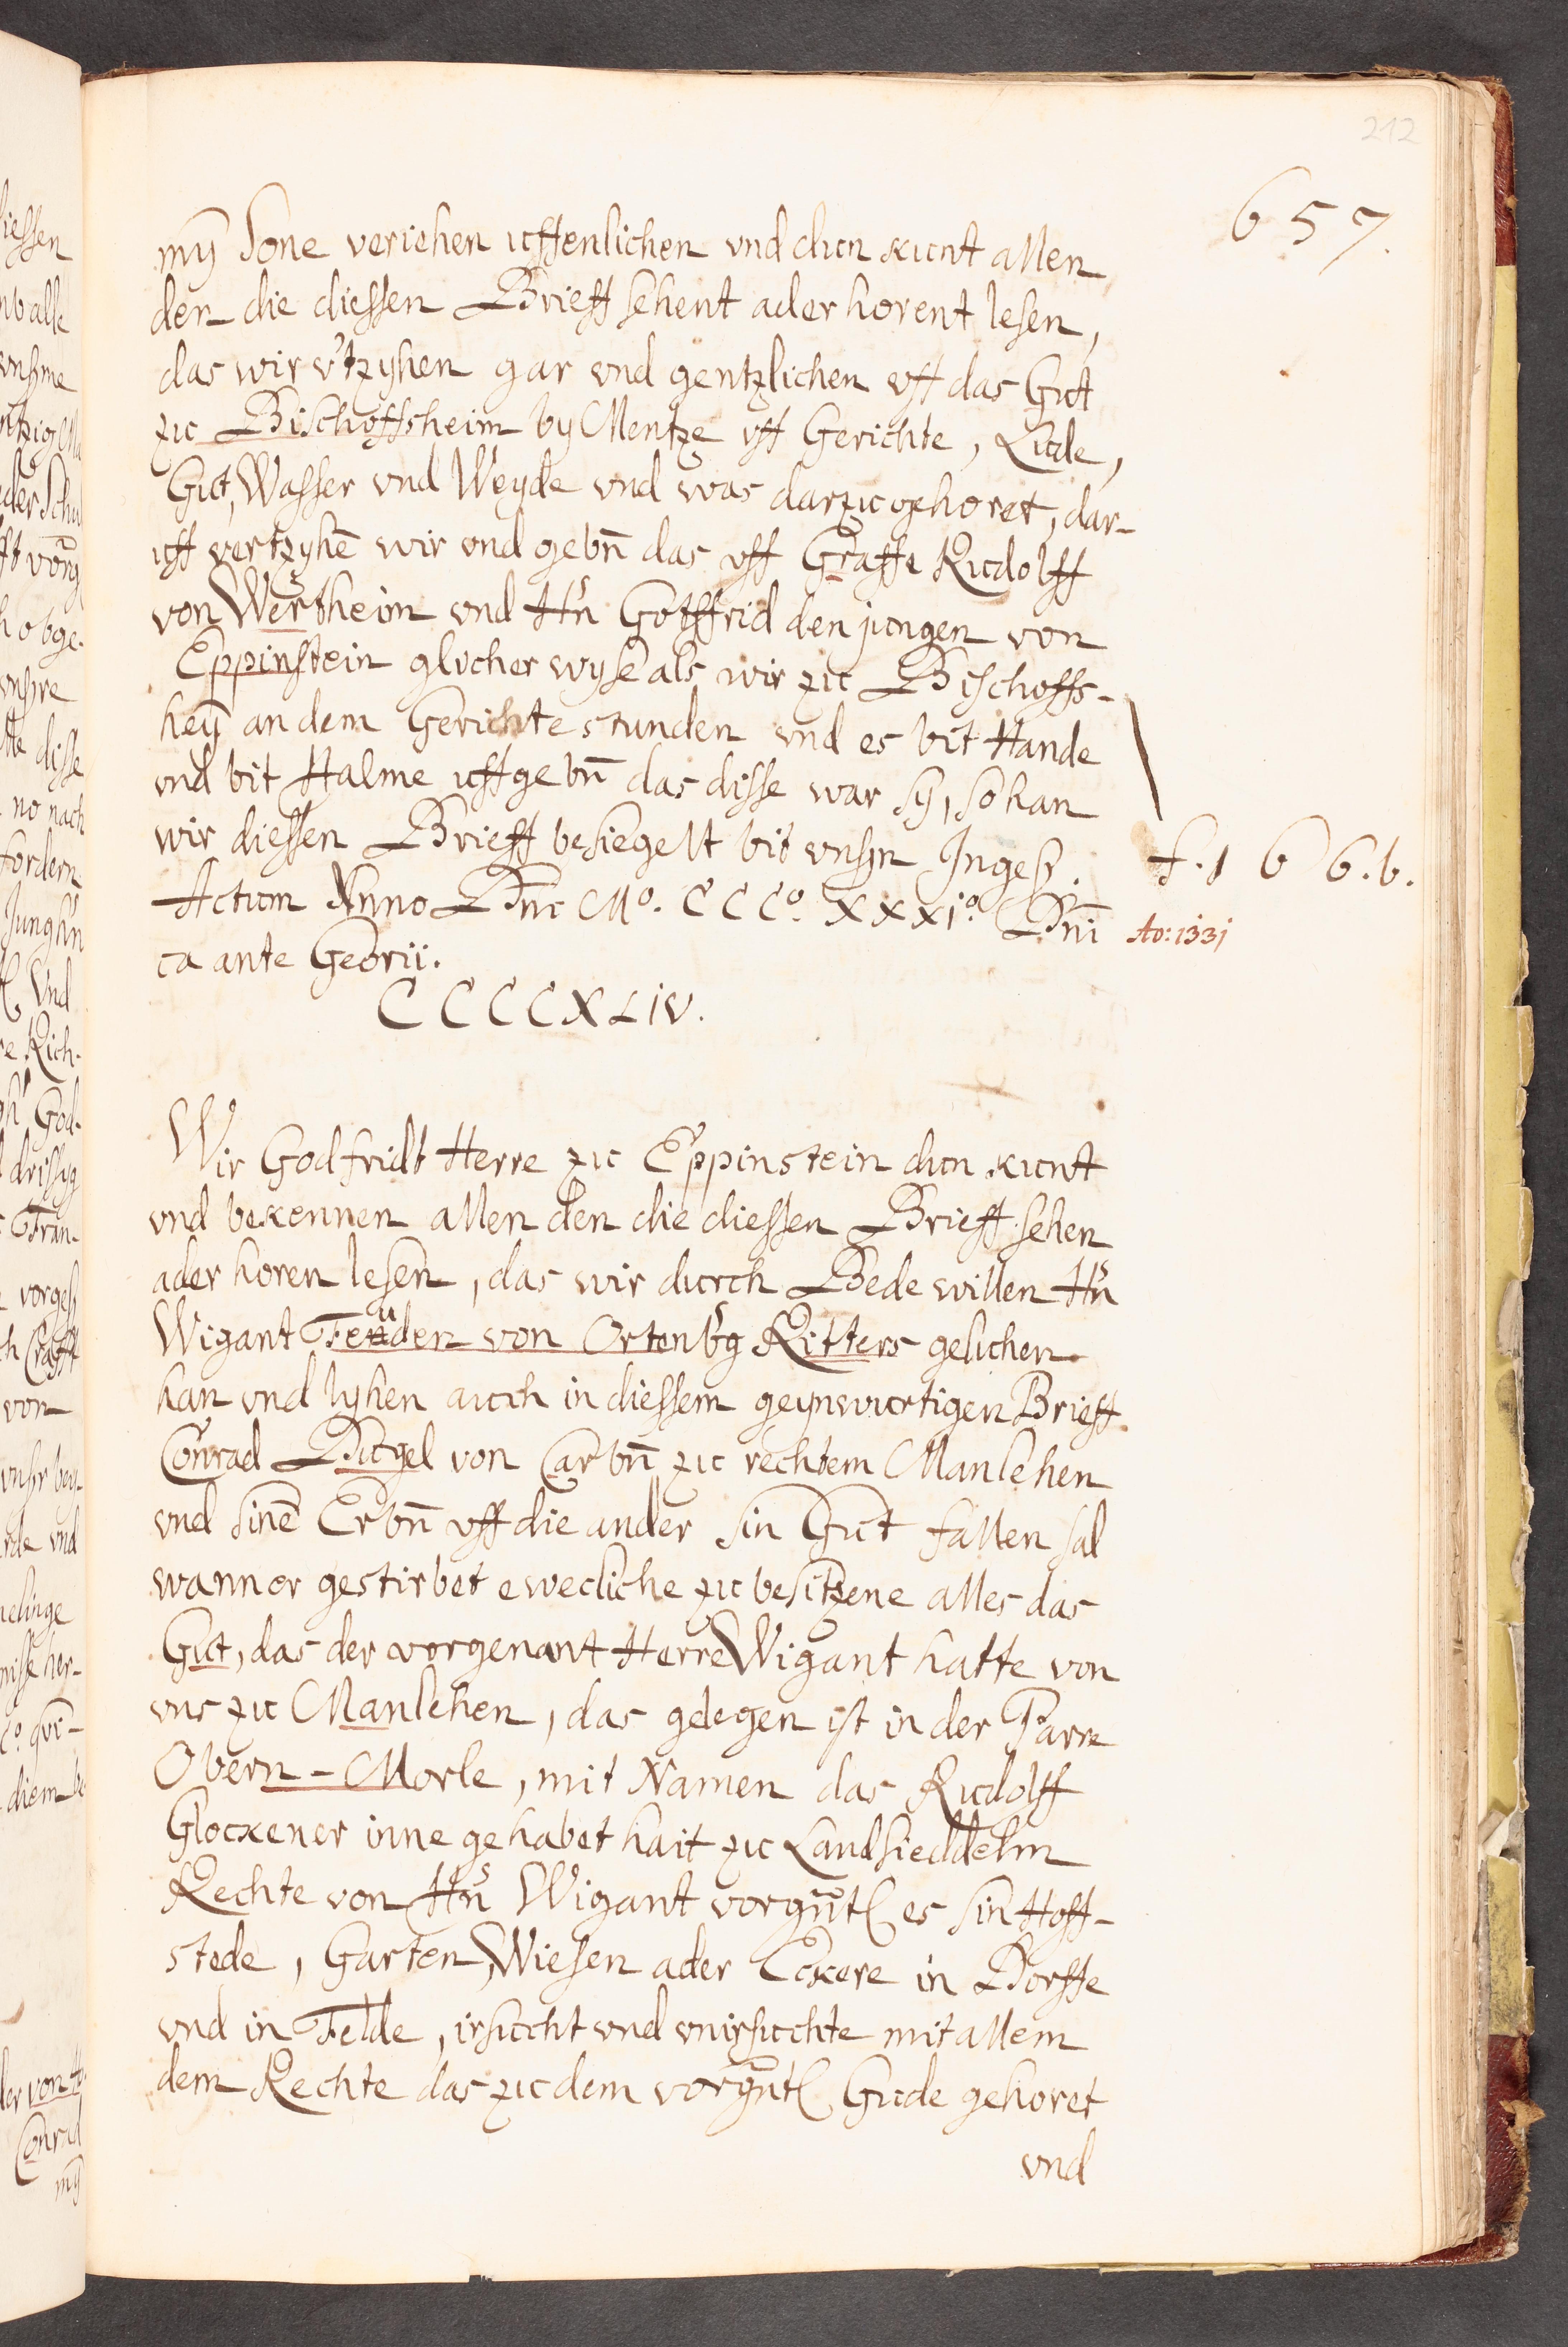 212
657.
mȳ Sone veriehen uffenlichen vnd dun kunt allen
den die diessen Brieff sehent ader horent lesen,
das wir v'tzyhen gar vnd gentzlichen vff das Gut
zu Bischoffsheim by Mentze vff Gerichte, Lude,
Gut, Wasser vnd Weyde vnd was darzu gehoret, dar-
uff vertzyhē wir vnd gebn̄ das vff Graffe Rudolff
von Wertheim vnd Hn̄ Gottfrid den jungen von
Eppinstein glicher wyse als wir zu Bischoffs-
heȳ an dem Gerichte stunden vnd es bit Hande
vnd bit Halme uffgebn̄ das disse war sy, so han
wir diessen Brieff besiegelt bit vnsn Ingeß.
f. 166.b.
Actum Anno Dni Mo. CCCo. XXXIo Dn̄i
Ao: 1331
ca ante Georii.
CCCCXLIV.
Wir Godfridt Herre zu Eppinstein dun kunt
vnd bekennen allen den die diessen Brieff sehen
ader horen lesen, das wir durch Bede willen Hn̄
Wigant von Ortenb'g Ritters gelichen
han vnd lyhen auch in diessem geynwurtigen Brieff
Conrad Dugel von Carbn̄ zu rechtem Manlehen
vnd sinē Erbn̄ vff die ander sin Gut fallen sal
wanner gestirbet ewecliche zu besitzene alles das
Gut, das der vorgenant Herre Wigant hatte von
vns zu Manlehen, das gelegen ist in der Parre
Obern-Morle, mit Namen das Rudolff
Glockener inne gehabet hait zu Landsieddelm
Rechte von Hn̄ Wigant vorgn̄t es sin Hoff-
stede, Garten, Wiesen ader Eckere in Dorffe
vnd in Felde, irsucht vnd vnirsuchte mit allem
dem Rechte das zu dem vorgn̄t Gude gehoret
vnd